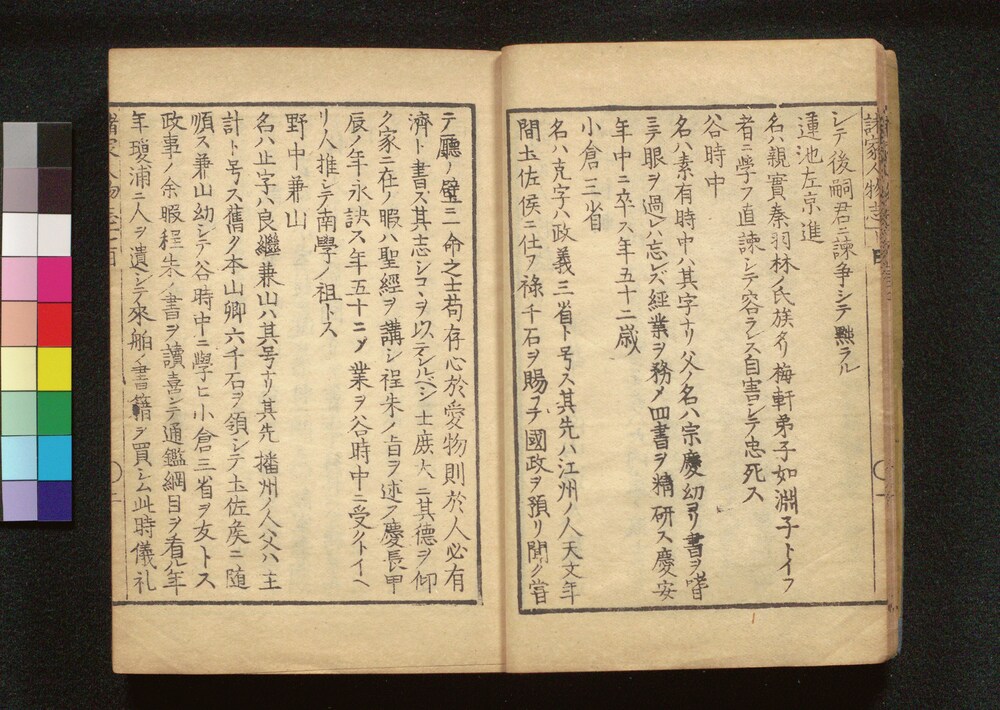 シテ後嗣君ニ諫争シテ黜ラル
蓮池左京進
名ハ親實秦羽林ノ氏族タリ梅軒弟子如淵子トイフ
者ニ學フ直諫シテ容ラレス自害シテ忠死ス
谷時中
名ハ素有時中ハ其字ナリ父ノ名ハ宗慶幼ヨリ書ヲ嗜
ミテ眼ヲ過レハ忘レズ經業ヲ務メ四書ヲ精研ス慶安
年中ニ卒ス年五十二歳
小倉三省
名ハ克字ハ政義三省ト号ス其先ハ江州ノ人天文年
間土佐侯ニ仕フ祿千石ヲ賜フテ國政ヲ預リ聞ク嘗
テ廳ノ壁ニ一命之士苟存心於愛物則於人必有
濟ト書ス其志シコヽヲ以テシルベシ士庶大ニ其德ヲ仰
ク家ニ在ノ暇ハ聖經ヲ講シ程朱ノ旨ヲ述フ慶長甲
辰ノ年永訣ス年五十二ソ業ヲ谷時中ニ受クトイヘ
リ人推シテ南學ノ祖トス
野中兼山
名ハ止字ハ良繼兼山ハ其号ナリ其先播州ノ人父ハ主
計ト号ス舊ク本山卿六千石ヲ領シテ土佐矦ニ随
順ス兼山幼シテハ谷時中ニ學ヒ小倉三省ヲ友トス
政事ノ余暇程朱ノ書ヲ讀喜シテ通鑑綱目ヲ看ル年
年瓊浦ニ人ヲ遺シテ來舶ノ書籍ヲ買シム此時儀礼